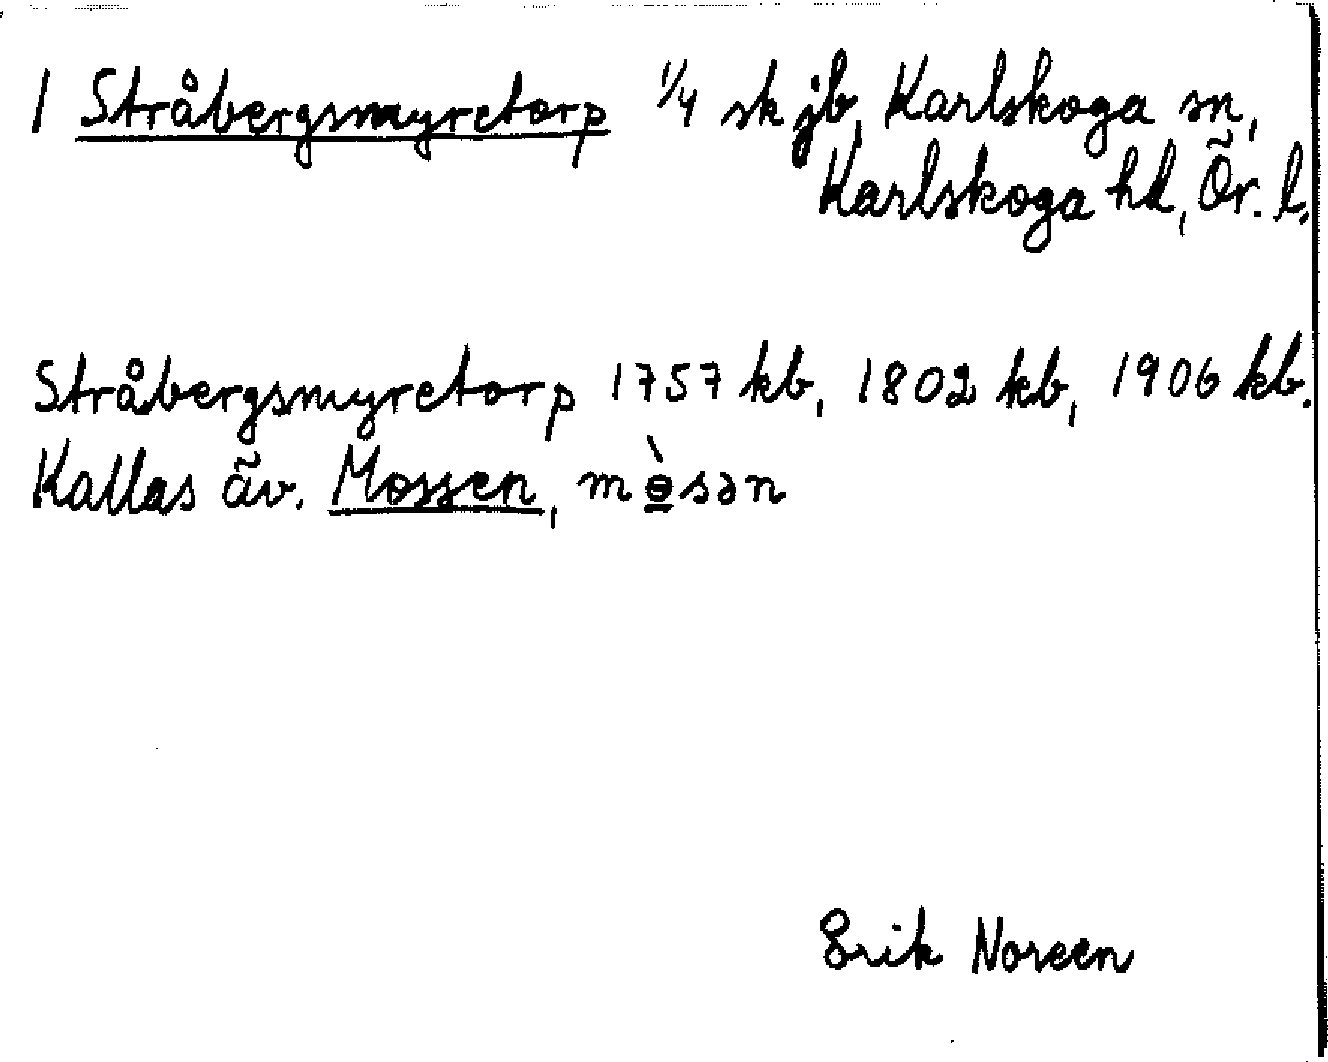 1 Stråbergsmyretorp 1/4 sk jb, Karlskoga sn,
Karlskoga hd, Ör. l.
Stråbergsmyretorp 1757 kb, 1802 kb, 1906 kb.
Kallas äv. Mossen, mɵ̱̀sən
Erik Noreen